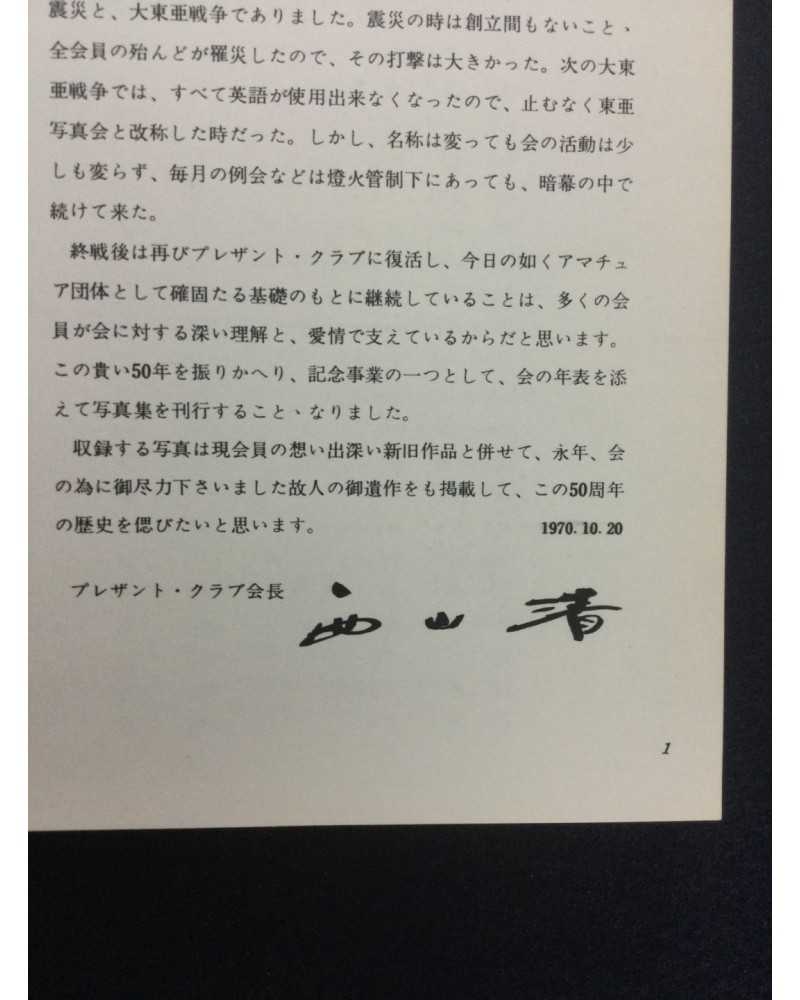 震災と、大東亜戦争でありました。震災の時は創立間もないこと、
全会員の殆んどが罹災したので、その打撃は大きかった。次の大東
亜戦争では、すべて英語が使用出来なくなったので、止むなく東亜
写真会と改称した時だった。しかし、名称は変っても会の活動は少
しも変らず、毎月の例会などは燈火管制下にあっても、暗幕の中で
続けて来た。
終戦後は再びプレザント・クラブに復活し、今日の如くアマチュ
ア団体として確固たる基礎のもとに継続していることは、多くの会
員が会に対する深い理解と、愛情で支えているからだと思います。
この貴い50年を振りかへり、記念事業の一つとして、会の年表を添
えて写真集を刊行することヽなりました。
収録する写真は現会員の想い出深い新旧作品と併せて、永年、会
の為に御尽力下さいました故人の御遺作をも掲載して、この50周年
の歴史を偲びたいと思います。 1970.10.20
プレザント・クラブ会長 西山清
1